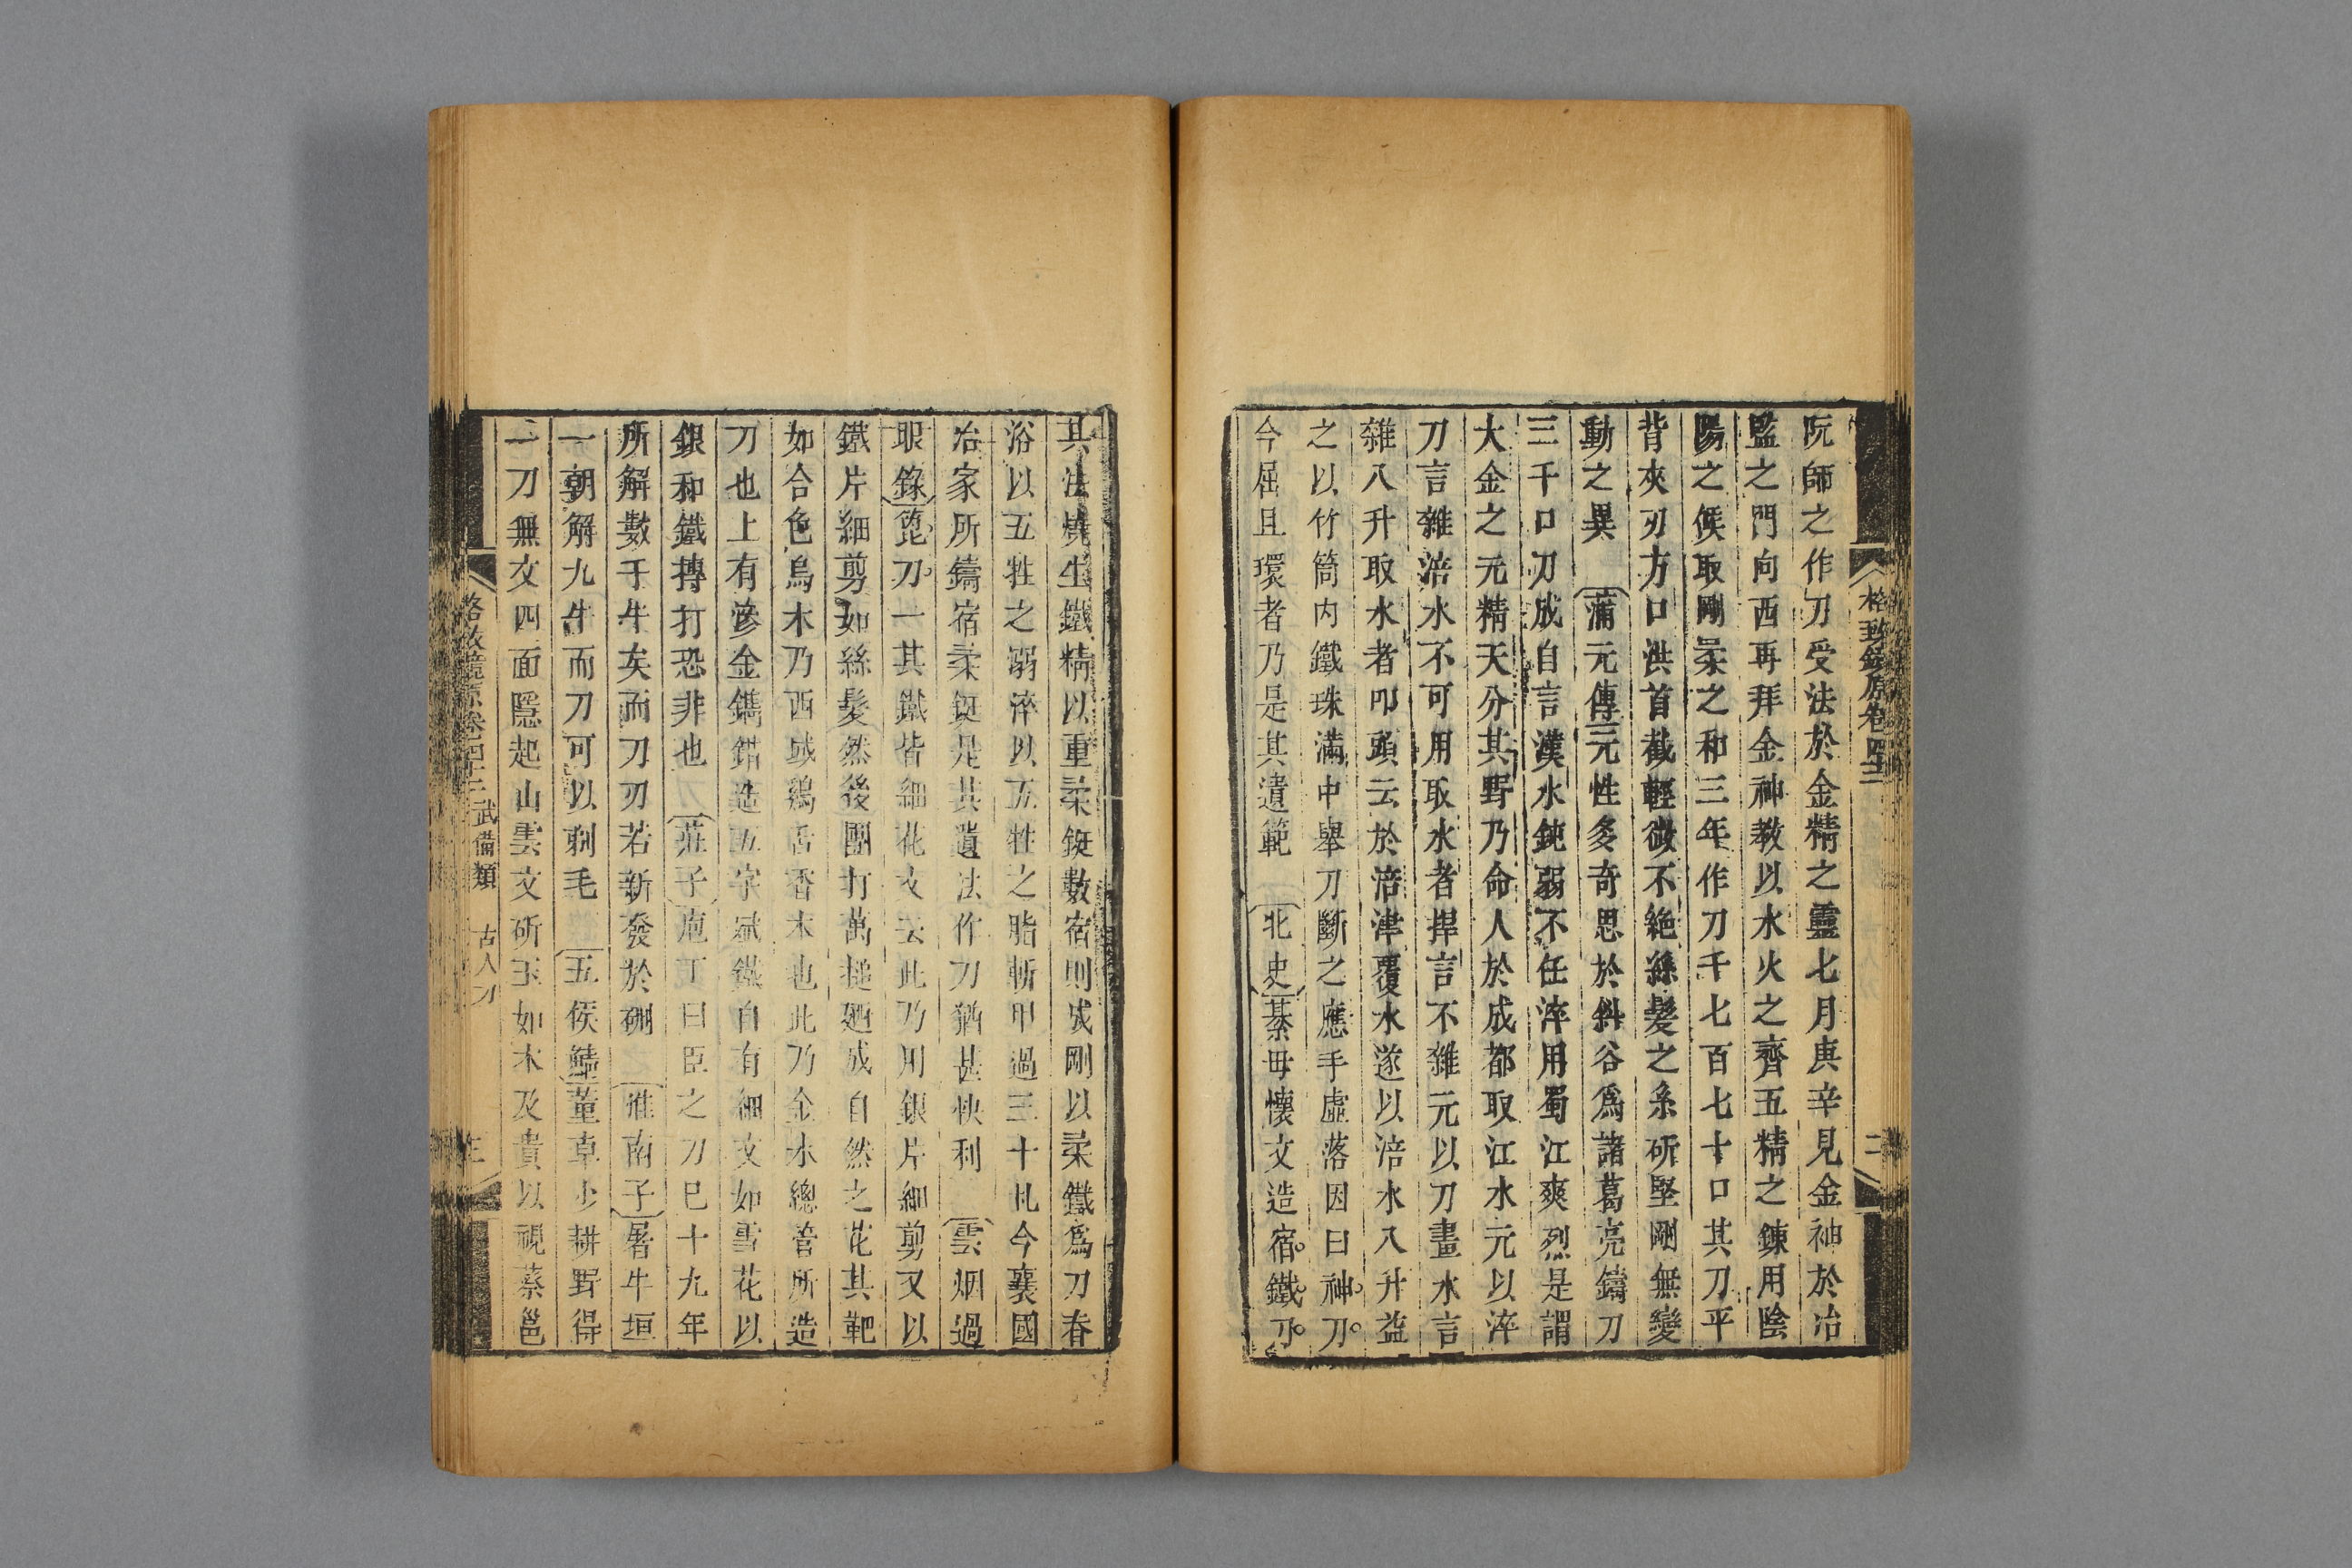 格致鏡原卷四十二
二
阮師之作刀受法於金精之靈七月庚辛見金神於冶
監之門向西再拜金神教以水火之齊五精之鍊用陰
陽之候取剛柔之和三年作刀千七百七十口其刀平
背夾刃方口洪首截輕微不絶絲髮之系斫堅剛無變
動之異 蒲元傳元性多奇思於斜谷爲諸葛亮鑄刀
三千口刀成自言漢水鈍弱不任淬用蜀江爽烈是謂
大金之元精天分其野乃命人於成都取江水元以淬
刀言雜涪水不可用取水者捍言不雜元以刀畫水言
雜八升取水者叩頭云於涪津覆水遂以涪水八升益
之以竹筒内鐵珠滿中舉刀斷之應手虛落因曰神刀
今屈且環者乃是其遺範 北史綦毋懷文造宿鐵刀
其法燒生鐵精以重柔鋌數宿則成剛以柔鐵爲刀脊
浴以五牲之溺淬以五牲之脂斬甲過三十札今襄國
冶家所鑄宿柔鋌是其遺法作刀猶甚快利 雲烟過
眼錄箆刀一其鐵皆細花文云此乃用銀片細剪又以
鐵片細剪如絲髮然後團打萬搥廼成自然之花其靶
如合色烏木乃西域鷄舌香木也此乃金水總管所造
刀也上有滲金鐫錯造五字 鐵自有細文如雪花以
銀和鐵摶打恐非也 莊子庖丁曰臣之刀已十九年
所解數千牛矣而刀刃若新發於硎 淮南子屠牛垣
一朝解九牛而刀可以剃毛 五侯鯖董卓少耕野得
一刀無文四面隱起山雲文斫玉如木及貴以視蔡邕
格致鏡原卷四十二 武備類 古人刀
三